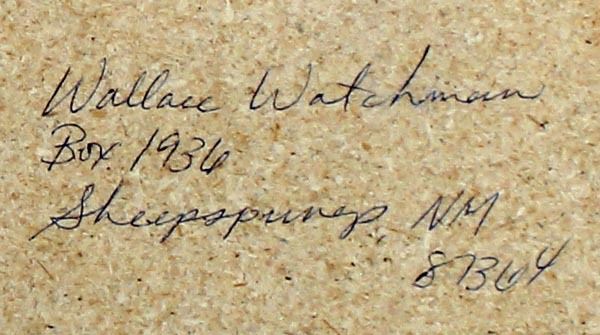 Wallace Watchman
Box 1936
Sheepsprings, NM
87364